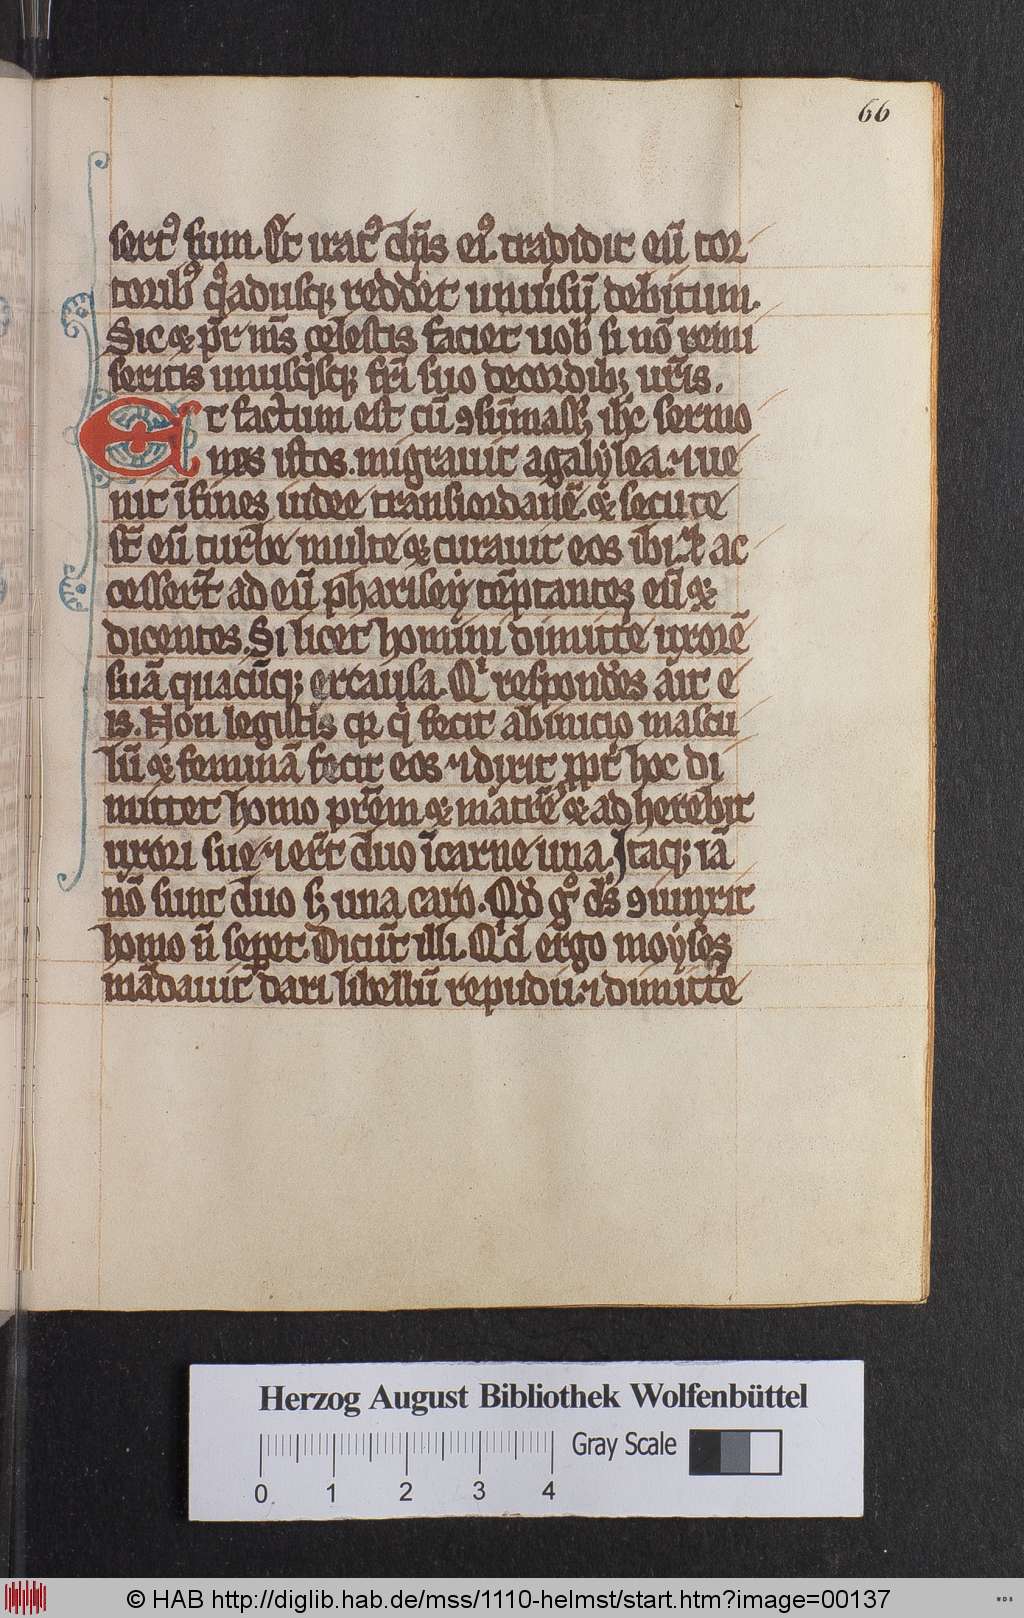 66
sertꝰ sum. Et iratꝰ dn̄s eiꝰ tradidit eū tor
toribꝰ q̊adusqꝫ redd'et uniūsū debitum.
Sic ⁊ pr̄ m̄s celestis faciet uob' si nō remi
seritis unusq̇sqꝫ fr̄i suo decordibꝫ ur̄is.
Et factum est cū ꝯsūmass' ih̄c sermo
nes istos. migrauit agalylea. ⁊ ue
nit īfines iudee transiordanē. ⁊ secute
st̄ eū turbe multe ⁊ curauit eos ibi. ⁊ ac
cesser̄t ad eū pharisey tēptantes eū ⁊
dicentes. Si licet homini dimitte' uxorē
suā quacūqꝫ excausa. Qi respond'es ait e
is. Non legistis qꝛ q̇ fecit abinicio mascu
lū ⁊ feminā fecit eos ⁊ dixit ꝓpt' hoc di
mittet homo pr̄em ⁊ matrē ⁊ adherebit
uxori sue ⁊ er̄t duo īcarne una. Itaqꝫ iā
nō sunt duo sꝫ una caro. Qd' gͦ ds̄ ꝯiunxit
homo n̄ sepet. Dicūt illi. Qid ergo moyses
mādauit dari libellū repudii. ⁊ dimitte'
Herzog August Bibliothek Wolfenbüttel
Gray Scale
0 1 2 3 4
© HAB http://diglib.hab.de/mss/1110-helmst/start.htm?image=00137